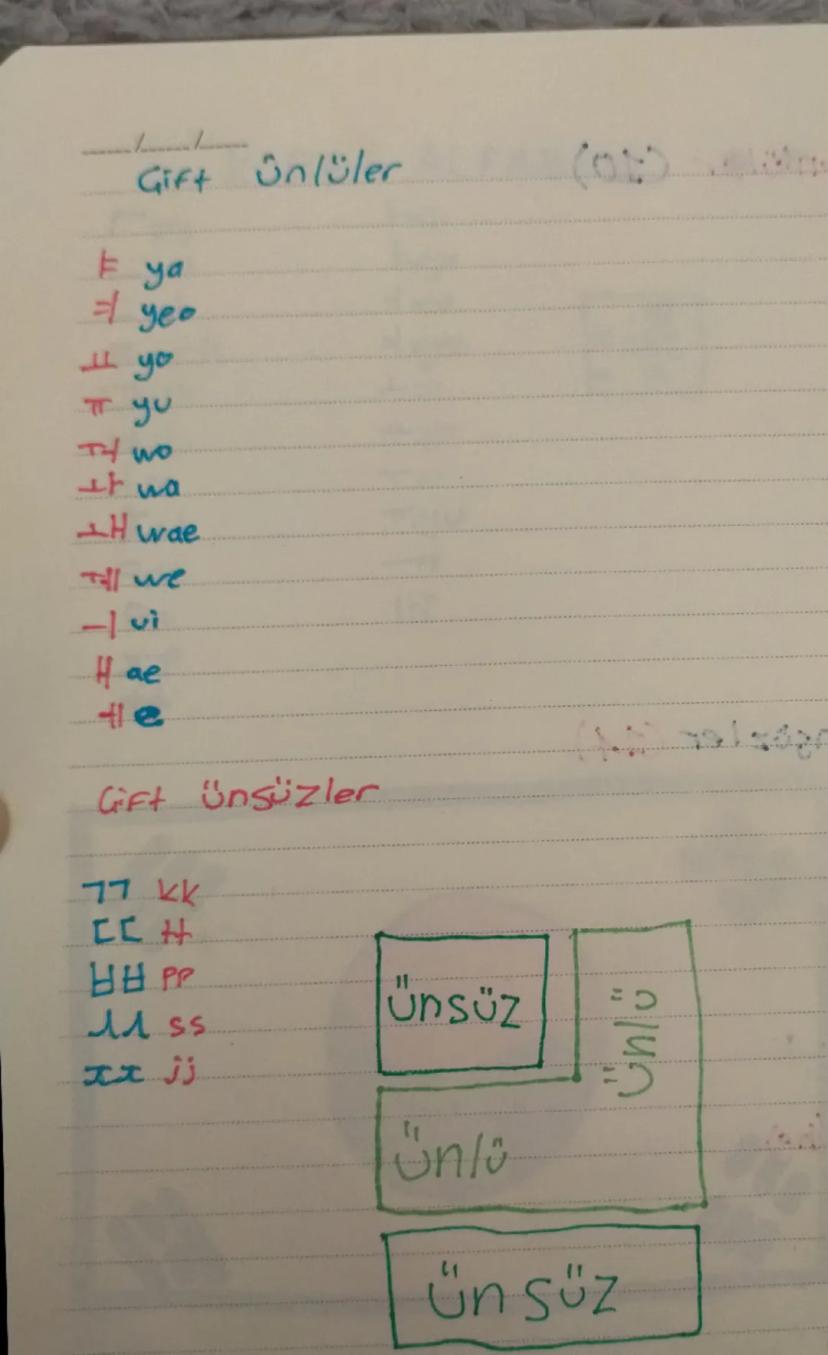 __/__/__
Çift ünlüler
ㅑ ya
ㅕ yeo
ㅛ yo
ㅠ yu
ㅝ wo
ㅘ wa
ㅙ wae
ㅞ we
ㅢ ui
ㅐ ae
ㅔ e
Çift ünsüzler
ㄲ kk
ㄸ tt
ㅃ pp
ㅆ ss
ㅉ jj
ünsüz
ünlü
ünlü
ünsüz